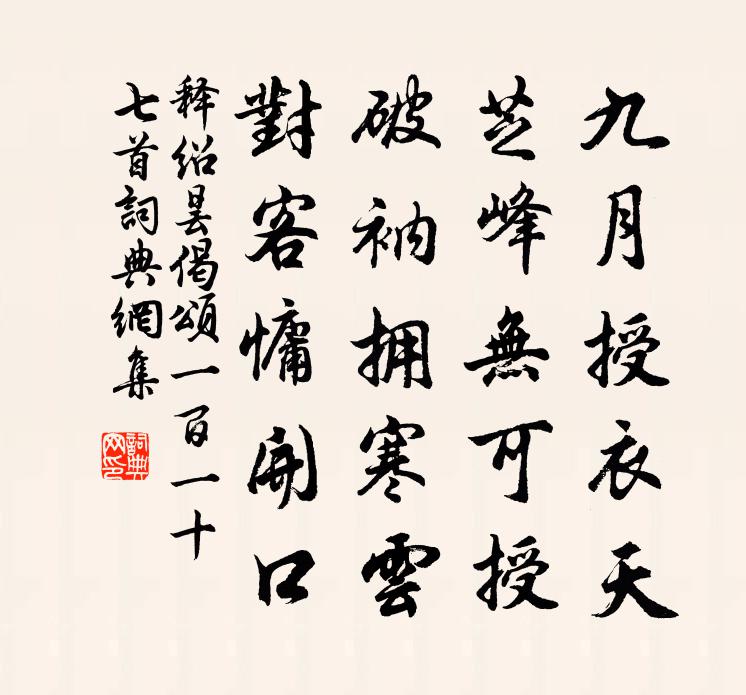 九月授衣天
芝峰無可授
破衲拥寒雲
對客慵開口
释绍昙偈頌一百一十
七首詞典網集
詞典网印